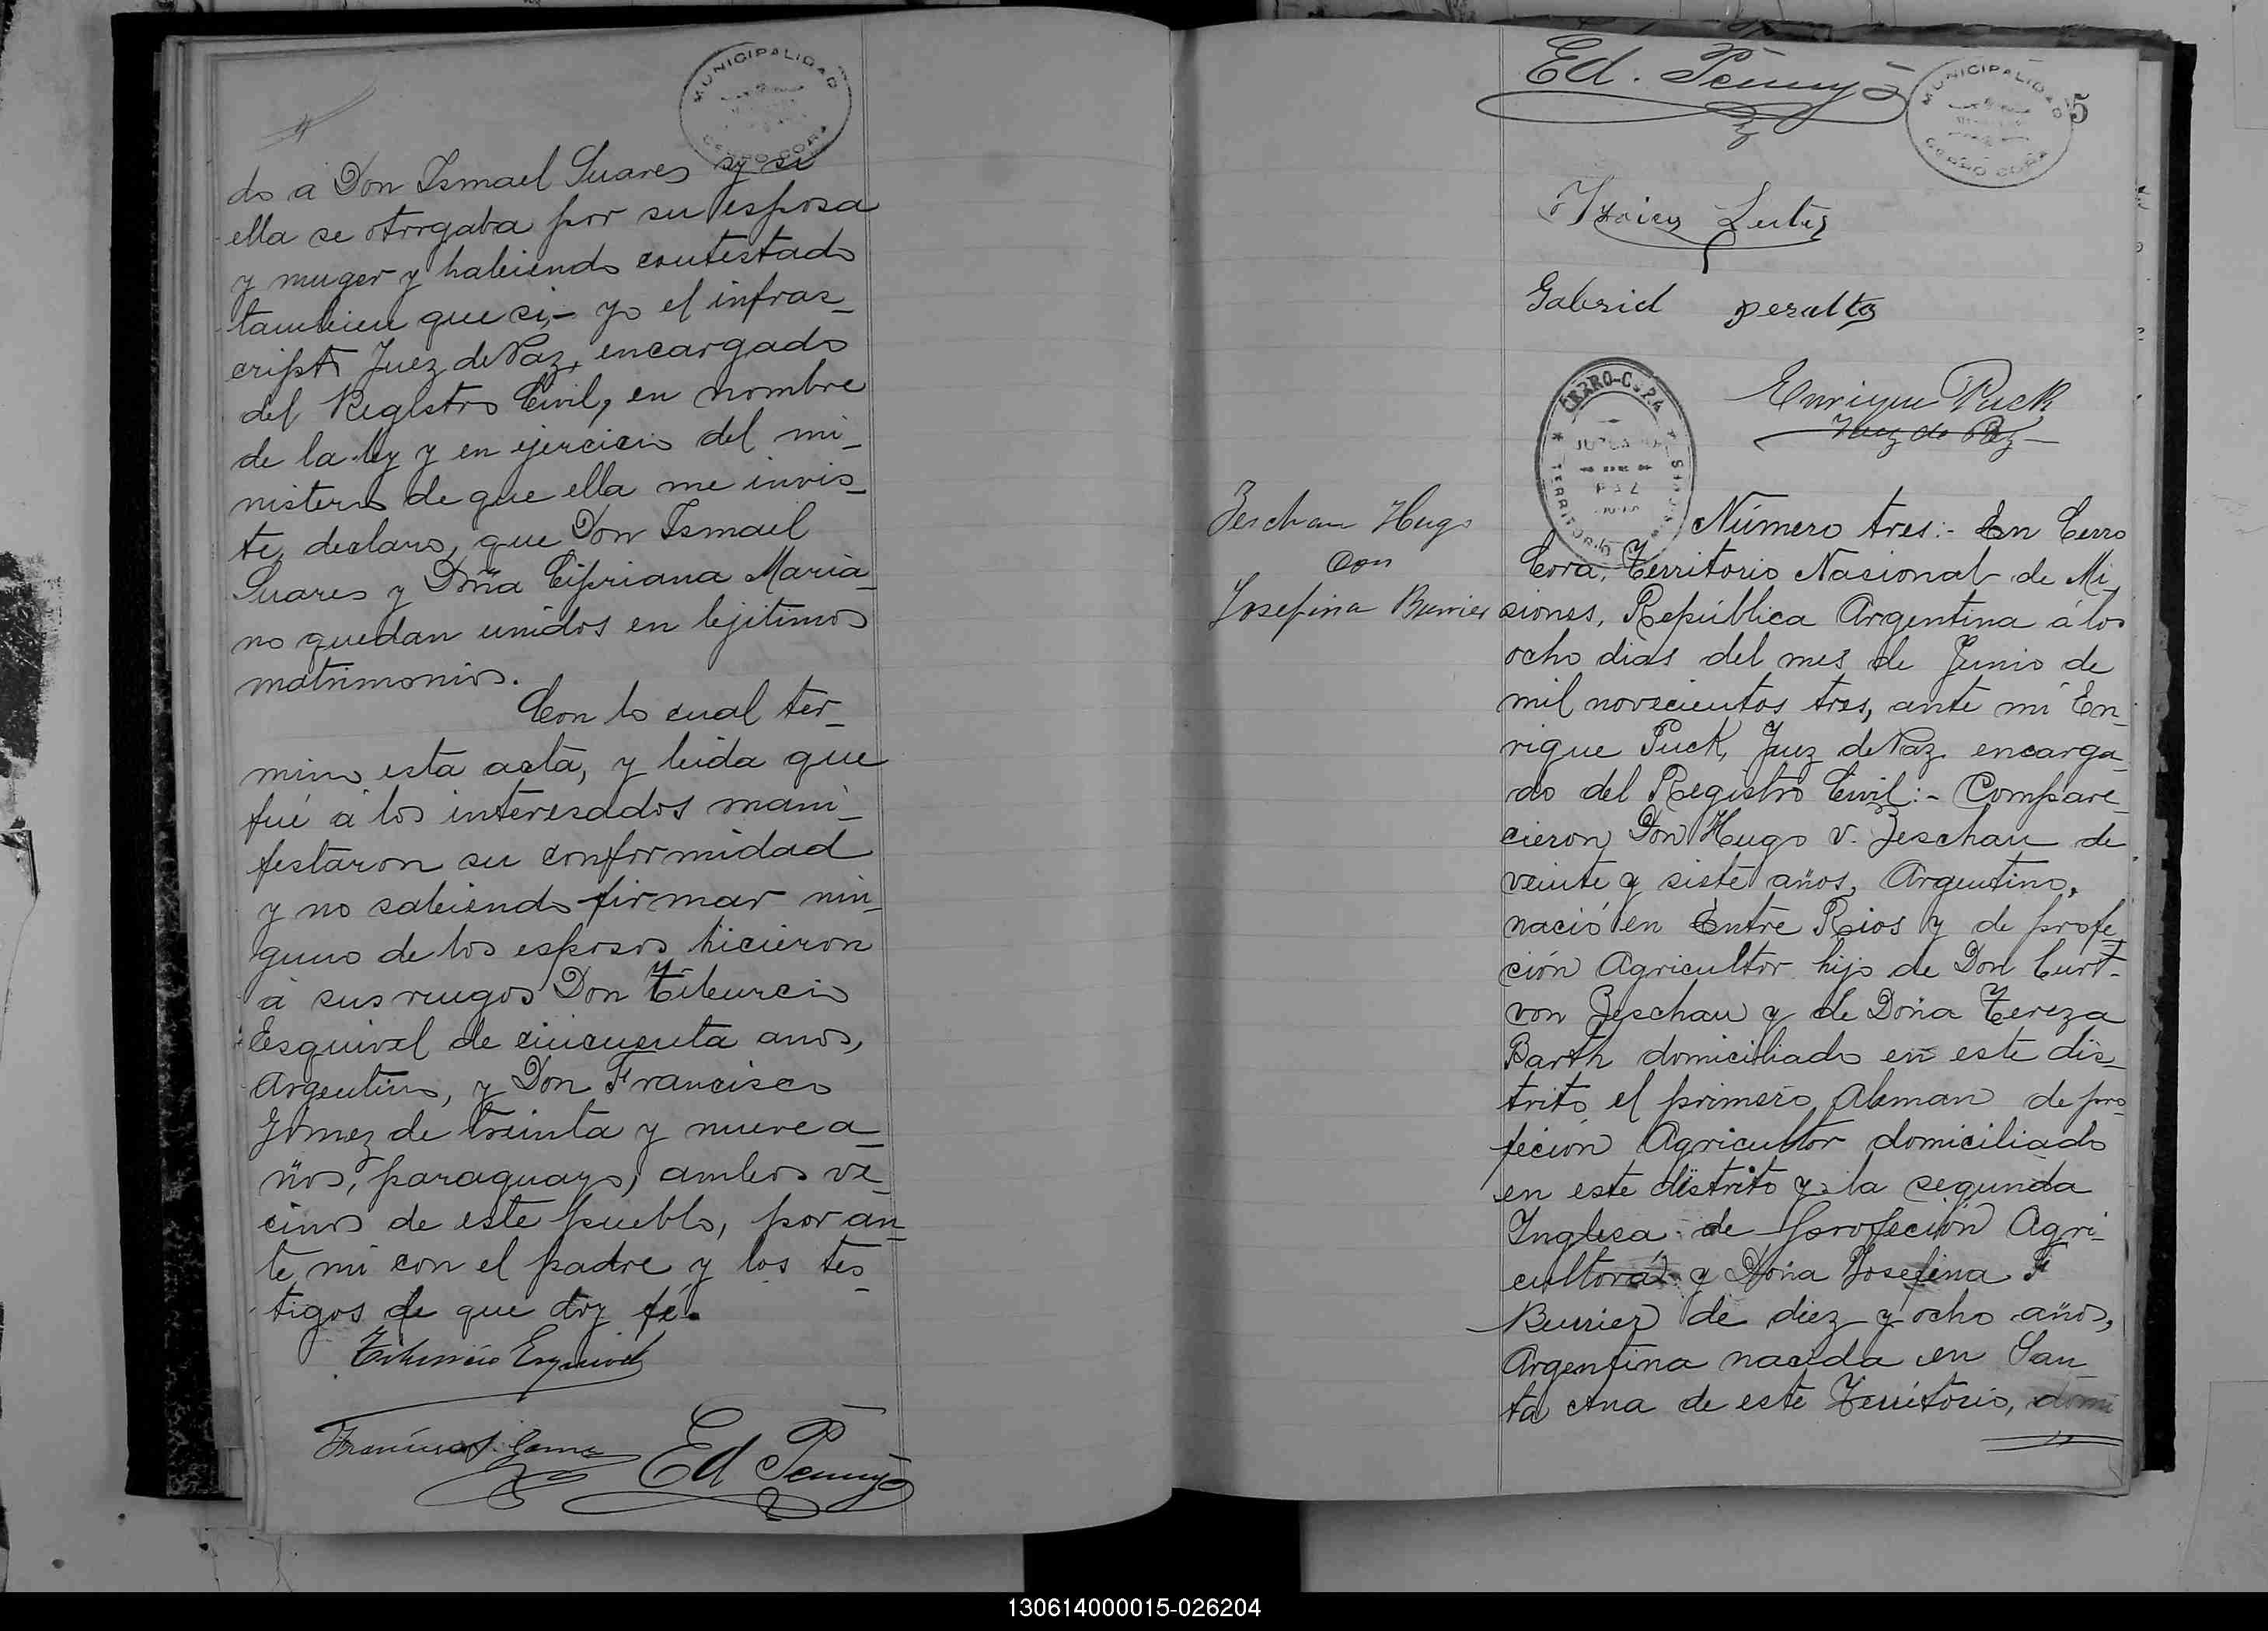 MUNICIPALIDAD
CERRO CORA
do á Don Ismael Suares y si
ella se otorgaba por su esposa
y muger y habiendo contestado
tambien que si,- yo el infras-
cripto Juez de Paz, encargado
del Registro Civil, en nombre
de la ley y en ejercicio del mi-
nisterio de que ella me invis-
te, declaro, que Don Ismael
Suares y Doña Cipriana Maria-
no quedan unidos en lejitimo
matrimonio.
Con lo cual ter-
mino esta acta, y leida que
fué á los interesados mani-
festaron su conformidad
y no sabiendo firmar nin-
guno de los esposos hicieron
á sus ruegos Don Tiburcio
Esquivel de cincuenta anos,
Argentino, y Don Francisco
Gomez de treinta y nueve a-
ños, paraguayo, ambos ve-
cinos de este pueblo, por an-
te mi con el padre y los tes-
tigos de que doy fé.
Tiburcio Esquivel
Ed
Ed.
MUNICIPALIDAD
CERRO CORA
5
Gabriel peralta
Enrique Puck
Juez de Paz
CERRO-CORA
JUZGADO
DE
PAZ
TERRITORIO
Zeschau Hugo
con
Josefina
Número tres:- En Cerro
Cora, Territorio Nasional de Mi-
siones, República Argentina á los
ocho dias del mes de Junio de
mil novecientos tres, ante mi En-
rique Puck, Juez de Paz encarga-
do del Registro Civil:- Compare-
cieron Don Hugo v. Zeschau de
veinte y siete años, Argentino,
nació en Entre Rios y de profe-
ción Agricultor hijo de Don Curt-
von Zeschau y de Doña Tereza
Barth domiciliado en este dis-
trito el primero Aleman de pro-
feción Agricultor domiciliado
en este distrito y la segunda
Inglesa de profeción Agri-
cultora y Doña Josefina F
de diez y ocho años,
Argentina nacida en San-
ta Ana de este Territorio, domi
130614000015-026204